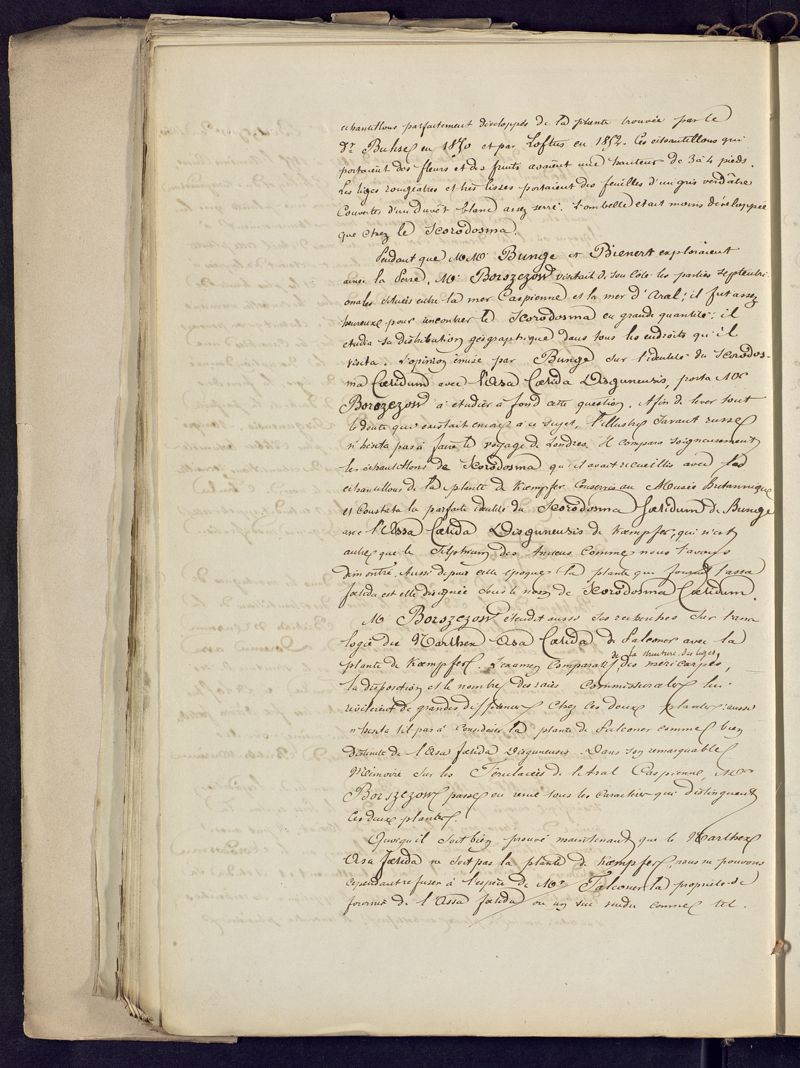 échantillons parfaitement développés de la plante trouvée par le
Dr Buhse en 1850 et par Loftus en 1852. Ces échantillons qui
portaient des fleurs et des fruits avaient une hauteur de 3 à 4 pieds.
Les tiges rougeâtres et très lisses portaient des feuilles d'un gris verdâtre
couvertes d'un duvet blanc assez serré. L'ombelle était moins développée
que chez le Scorodosma.
Pendant que MM. Bunge et Bienert exploraient
ainsi la Perse, Mr Borszezow visitait de son côté les parties septentri-
onales situées entre la mer Caspienne et la mer d'Aral; il fut assez
heureux pour rencontrer le Scorodosma en grande quantité; il
étudia sa distribution géographique dans tous les endroits qu'il
visita. L'opinion émise par Bunge sur l'identité du Scorodos-
ma foetidum avec l'Asa foetida Disgunensis, porta Mr
Borszezow à étudier à fond cette question. Afin de lever tout
le doute qui existait encore à ce sujet, l'illustre savant russe
n'hésita pas à faire le voyage de Londres. Il compara soigneusement
les échantillons de Scorodosma qu'il avait recueillis avec les
échantillons de la plante de Kœmpfer conservés au Musée Britannique
et constata la parfaite identité du Scorodosma foetidum de Bunge
avec l'Asa foetida Disgunensis de Kœmpfer, qui n'est
autre que le Silphium des anciens comme nous l'avons
démontré. Aussi depuis cette époque la plante qui fournit l'assa
foetida est elle désignée sous le nom de Scorodosma foetidum.
Mr Borszezow étendit aussi ses recherches sur l'ana
logie du Narthex Asa foetida de Falconer avec la
plante de Kœmpfer. L'examen comparatif de la structure des tiges, des méricarpes,
la disposition et le nombre des raies commissurales lui
révélèrent de grandes différences chez ces deux plantes: aussi
n'hésita t'il pas à considérer la plante de Falconer comme bien
distincte de l'Asa foetida Disgunensis. Dans son remarquable
Mémoire sur les Férulacées de l'Aral Caspienne, Mr
Borszezow passe en revue tous les caractères qui distinguent
ces deux plantes.
Quoiqu'il soit bien prouvé maintenant que le Narthex
Asa foetida ne soit pas la plante de Kœmpfer, nous ne pouvons
cependant refuser à l'espèce de Mr Falconer la propriété de
fournir de l'Assa foetida ou un suc vendu comme tel.